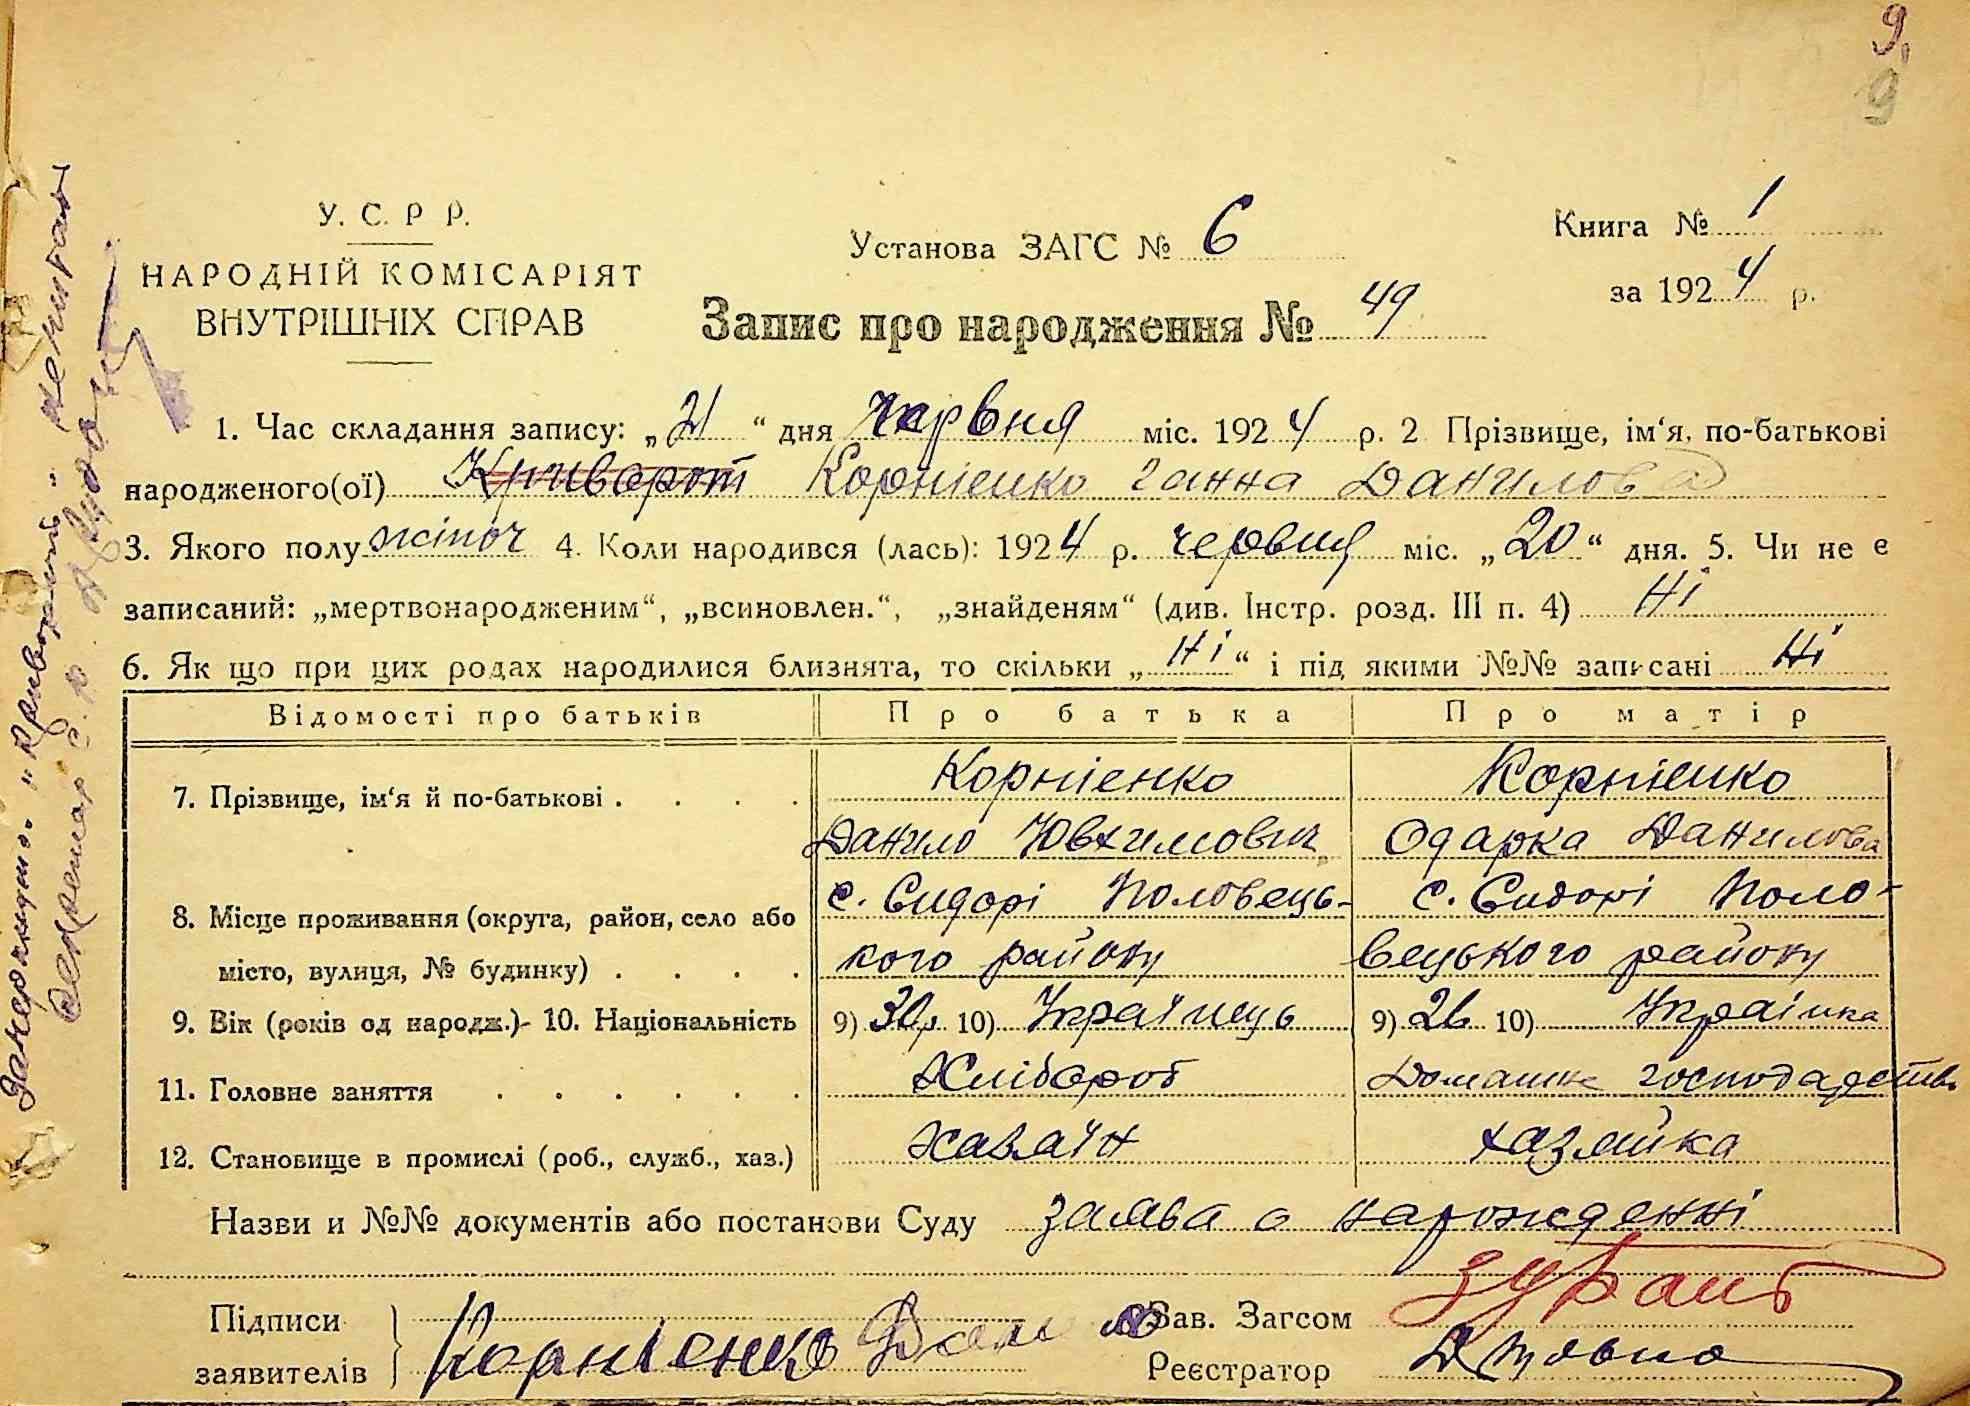 9.
9
У. С. Р Р.
НАРОДНІЙ КОМІСАРІЯТ
ВНУТРІШНІХ СПРАВ
Установа ЗАГС № 6
Книга № 1
за 1924 р.
Запис про народження № 49
1. Час складання запису: „21“ дня червня міс. 1924 р. 2 Прізвище, ім‘я, по-батькові
народженого(ої) Криворот Корнієнко Ганна Данилова
3. Якого полу жіноч 4. Коли народився (лась): 1924 р. червня міс. „20“ дня. 5. Чи не є
записаний: „мертвонародженим“, „всиновлен.“, „знайденям“ (див. Інстр. розд. III п. 4) Ні
6. Як що при цих родах народилися близнята, то скільки „Ні“ і під якими №№ записані Ні
Відомості про батьків Про батька Про матір
7. Прізвище, ім‘я й по-батькові . . . . Корнієнко Корнієнко
Данило Ювхимович Одарка Данилова
8. Місце проживання (округа, район, село або с. Сидорі Половець- с. Сидорі Поло-
місто, вулиця, № будинку) . . . . кого району вецького району
9. Вік (років од народж.)- 10. Національність 9) 30р 10) Українець 9) 26 10) Українка
11. Головне заняття . . . . . . Хлібороб Домашнє господарство
12. Становище в промислі (роб., служб., хаз.) хазаїн хазяйка
Назви и №№ документів або постанови Суду заява о нарожденні
Підписи
заявителів
Корнієнко
Зав. Загсом
Реєстратор
Закреслено „Криворот“ не читать